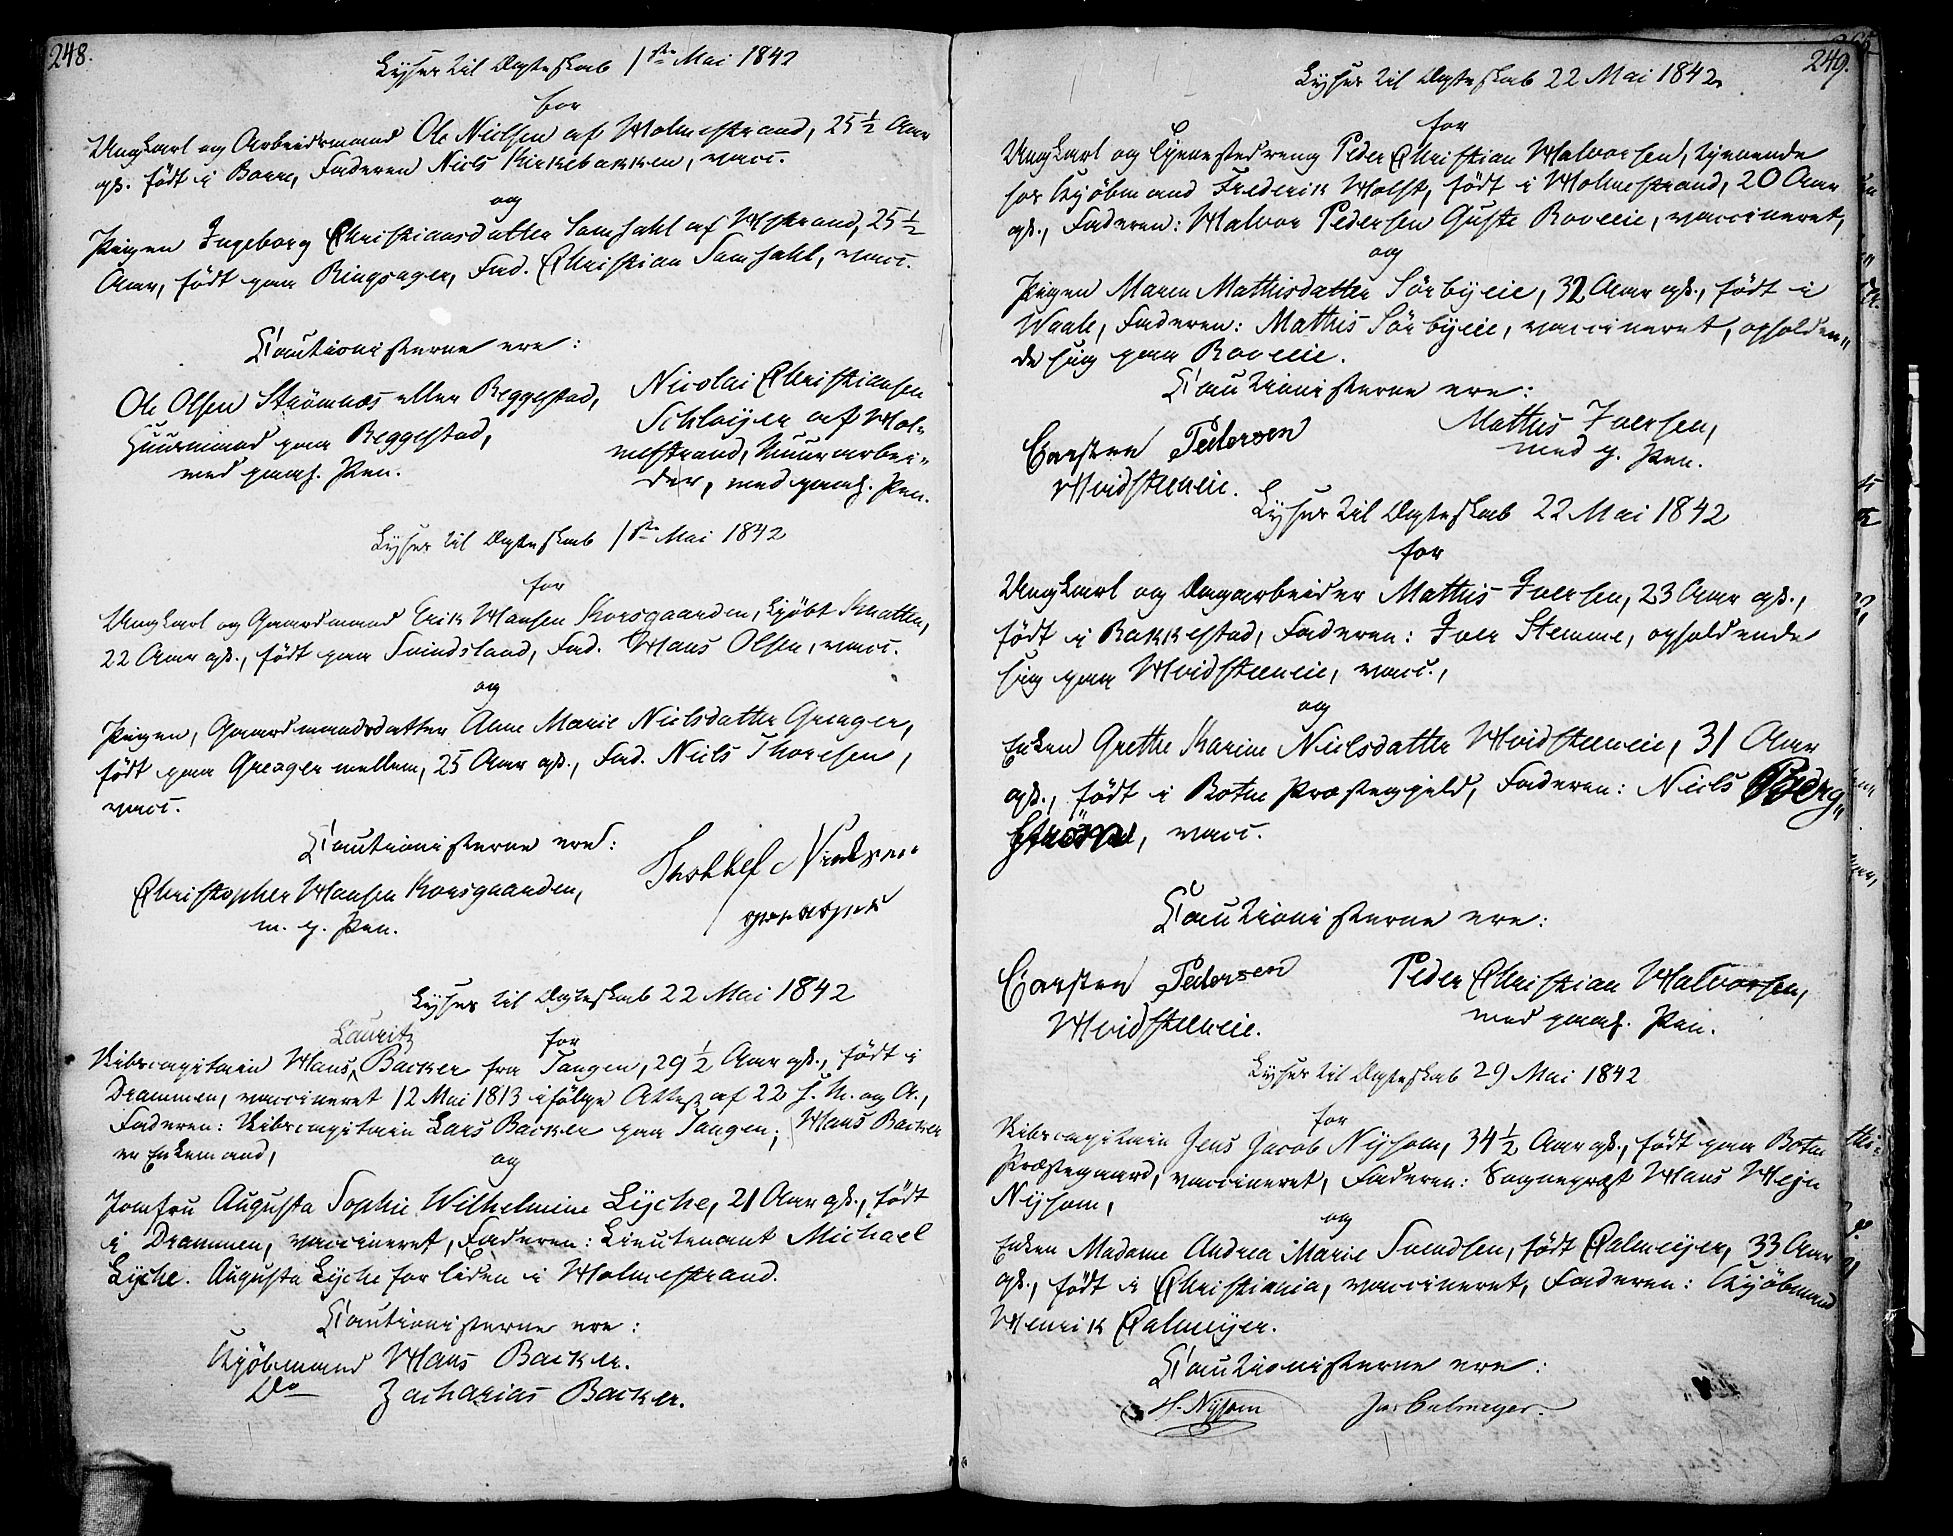 248.
Lyses til Ægteskab 1ste Mai 1842
for
Ungkarl og Arbeidsmand Ole Nielsen af Holmestrand, 25 1/2 Aar
gl. født i Borre, Faderen Niels Kirkebakken, vacc.
og
Pigen Ingeborg Christiansdatter Samsahl af Hstrand, 25 1/2
Aar, født paa Ringsager, Fad. Christian Samsahl, vacc.
Cautionisterne ere:
Ole Olsen Strömnæs eller Beggestad,
Huusmand paa Beggestad,
med paah. Pen.
Nicolai Christiansen
Schløijer af Hol-
mestrand, Muurarbei-
der, med paah. Pen.
Lyses til Ægteskab 1ste Mai 1842
for
Ungkarl og Gaardmand Erik Hansen Korsgaarden, kjöbt Knatten,
22 Aar gl., født paa Svindsland, Fad. Hans Olsen, vacc.
og
Pigen, Gaardmandsdatter Anne Marie Nielsdatter Greager,
født paa Greager mellem, 25 Aar gl., Fad. Niels Thoresen,
vacc.
Cautionisterne ere:
Christopher Hansen Korsgaarden,
m. p. Pen.
Nielsen
Lyses til Ægteskab 22 Mai 1842
for
Lauritz
Skibscapitain Hans Backer fra Tangen, 29 1/2 Aar gl., født i
Drammen, vaccineret 12 Mai 1813 ifölge Attest af 22 s. M. og A.,
Faderen: Skibscapitain Lars Backer paa Tangen; Hans Backer
er Enkemand,
og
Jomfru Augusta Sophie Wilhelmine Lyche, 21 Aar gl., født
i Drammen, vaccineret, Faderen: Lieutenant Michael
Lyche. Augusta Lyche for tiden i Holmestrand.
Cautionisterne ere:
Kjöbmand Hans Backer.
Do Zacharias Backer.
249.
Lyses til Ægteskab 22 Mai 1842
for
Ungkarl og Tjenestedreng Peder Christian Halvorsen, tjenende
hos Kjöbmand Frederik Holst, født i Holmestrand, 20 Aar
gl., Faderen: Halvor Pedersen Roveeie, vaccineret,
og
Pigen Maren Mathisdatter Sörbyeie, 32 Aar gl., født i
Waale, Faderen: Mathis Sörbyeie, vaccineret, opholden-
de sig paa Roveeie.
Cautionisterne ere:
Carsten Pedersen
Hvidsteeneie.
Mathis Iversen,
med p. Pen.
Lyses til Ægteskab 22 Mai 1842
for
Ungkarl og Dagarbeider Mathis Iversen, 23 Aar gl.,
født i Bakkestad, Faderen: Iver Stemme, opholdende
sig paa Hvidsteeneie, vacc.,
og
Enken Grethe Karine Nielsdatter Hvidsteeneie, 31 Aar
gl., født i Botne Præstegjeld, Faderen: Niels Berg-
ström, vacc.
Cautionisterne ere:
Carsten Pedersen
Hvidsteeneie.
Peder Christian Halvorsen,
med paah. Pen.
Lyses til Ægteskab 29 Mai 1842
for
Skibscapitain Jens Jacob Nysom, 34 1/2 Aar gl., født paa Botne
Præstegaard, vaccineret, Faderen: Sognepræst Hans Hejn
Nysom,
og
Enken Madame Andrea Marie Svendsen, født Calmeijer, 33 Aar
gl., født i Christiania, vaccineret, Faderen: Kjöbmand
Henrik Calmeijer.
Cautionisterne ere:
H. Nysom
Calmeyer.